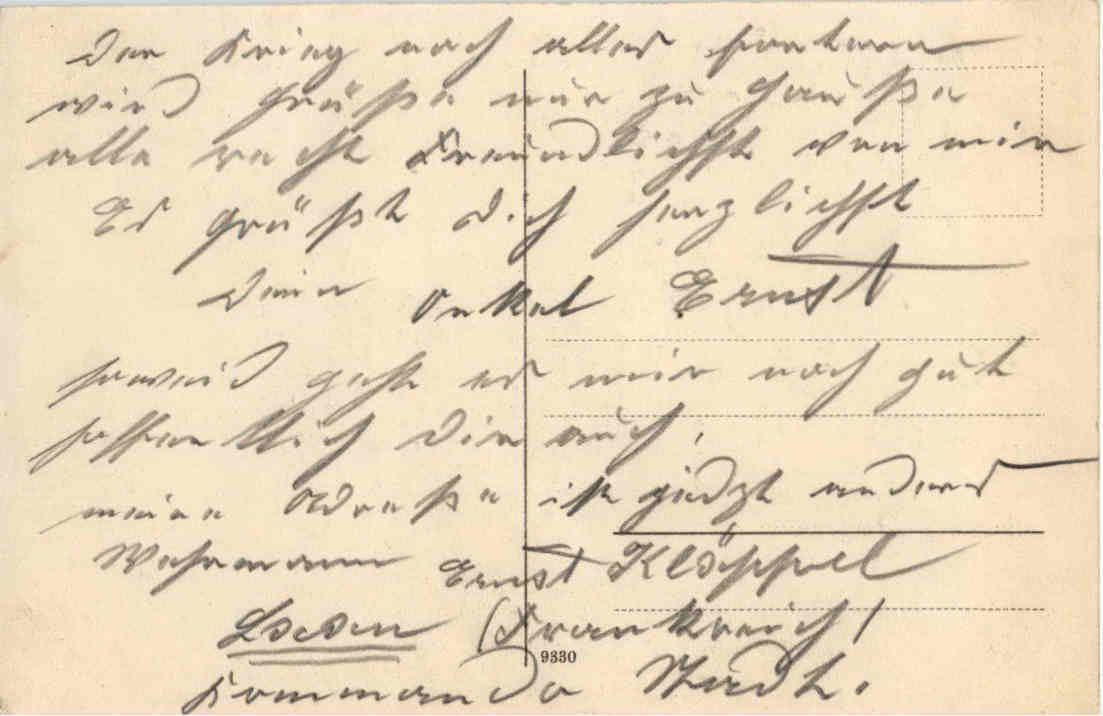 Der Krieg noch alles
wird grüße nur zu Hauße
alle recht Freundlichst von mir
Es grüßt Dich herzlichst
Dein Onkel Ernst
soweid geht es mir noch gut
hoffentllich Dir auch,
meine Adreße ist jedzt anders
Wehrmann Ernst Klöppel
(Frankreich)
Kommando Stadt.
9330